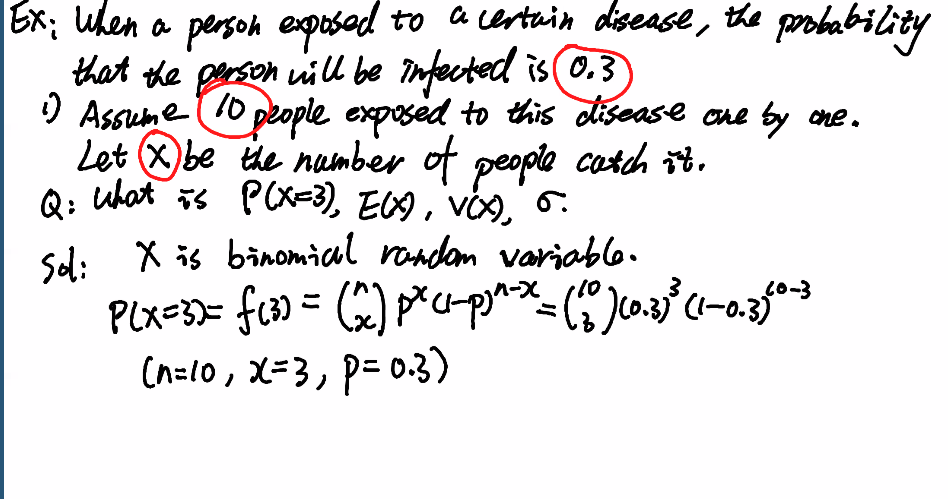 Ex: When a person exposed to a certain disease, the probability
that the person will be infected is 0.3
1) Assume 10 people exposed to this disease one by one.
Let X be the number of people catch it.
Q: What is P(X=3), E(X), V(X), σ.
Sol: X is binomial random variable.
P(X=3)= f(3) = (n x) p^x (1-p)^{n-x} = (10 3) (0.3)^3 (1-0.3)^{10-3}
(n=10, x=3, p=0.3)